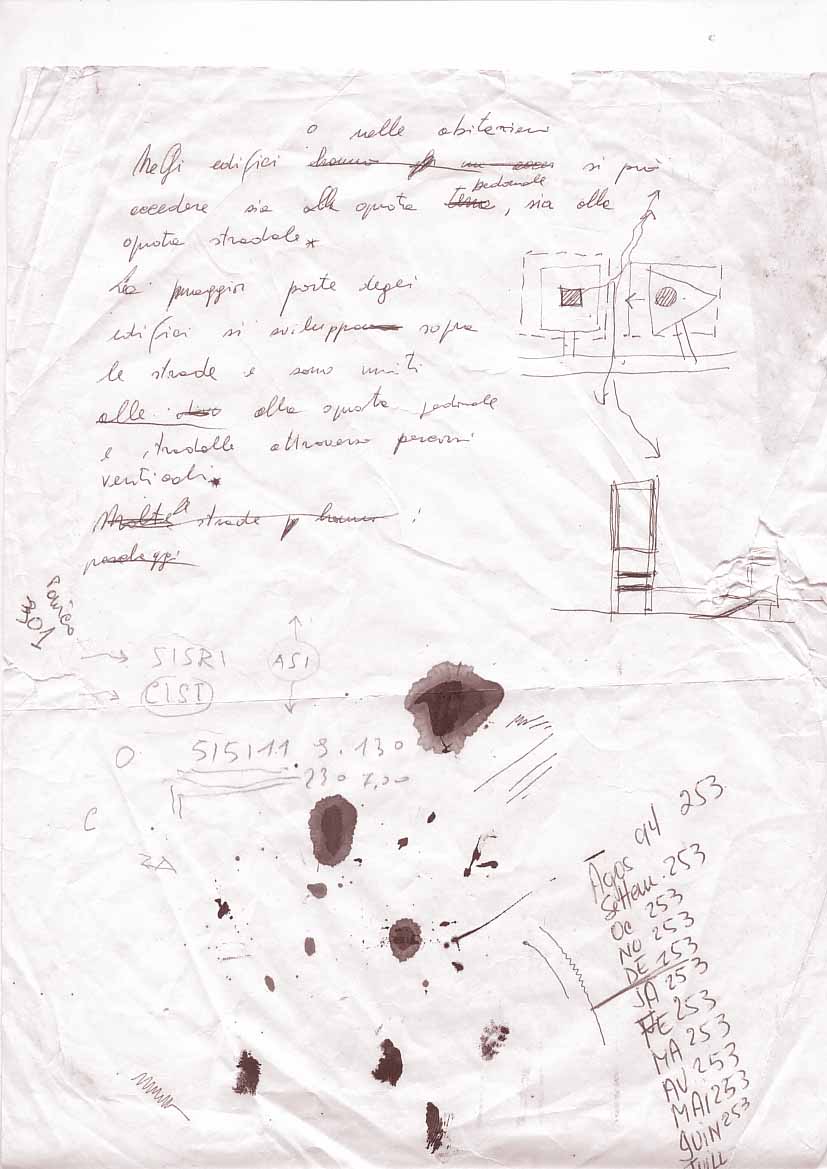 o nelle abitazioni
Negli edifici hanno si può
accedere sia alla quota pedonale, sia alla
quota stradale*
La maggior parte degli
edifici si sviluppa sopra
le strade e sono uniti
alle alla quota pedonale
e stradalle attraverso percorsi
verticali*
Molte le strade hanno
passaggi
901
→ SISRI
ASI
→ CISI
O 515111 9.130
230 7,00
C
ZA
Agos 94 253
Settem. 253
OC 253
NO 253
DE 253
JA 253
FE 253
MA 253
AV 253
MAI 253
JUIN 253
JUILL